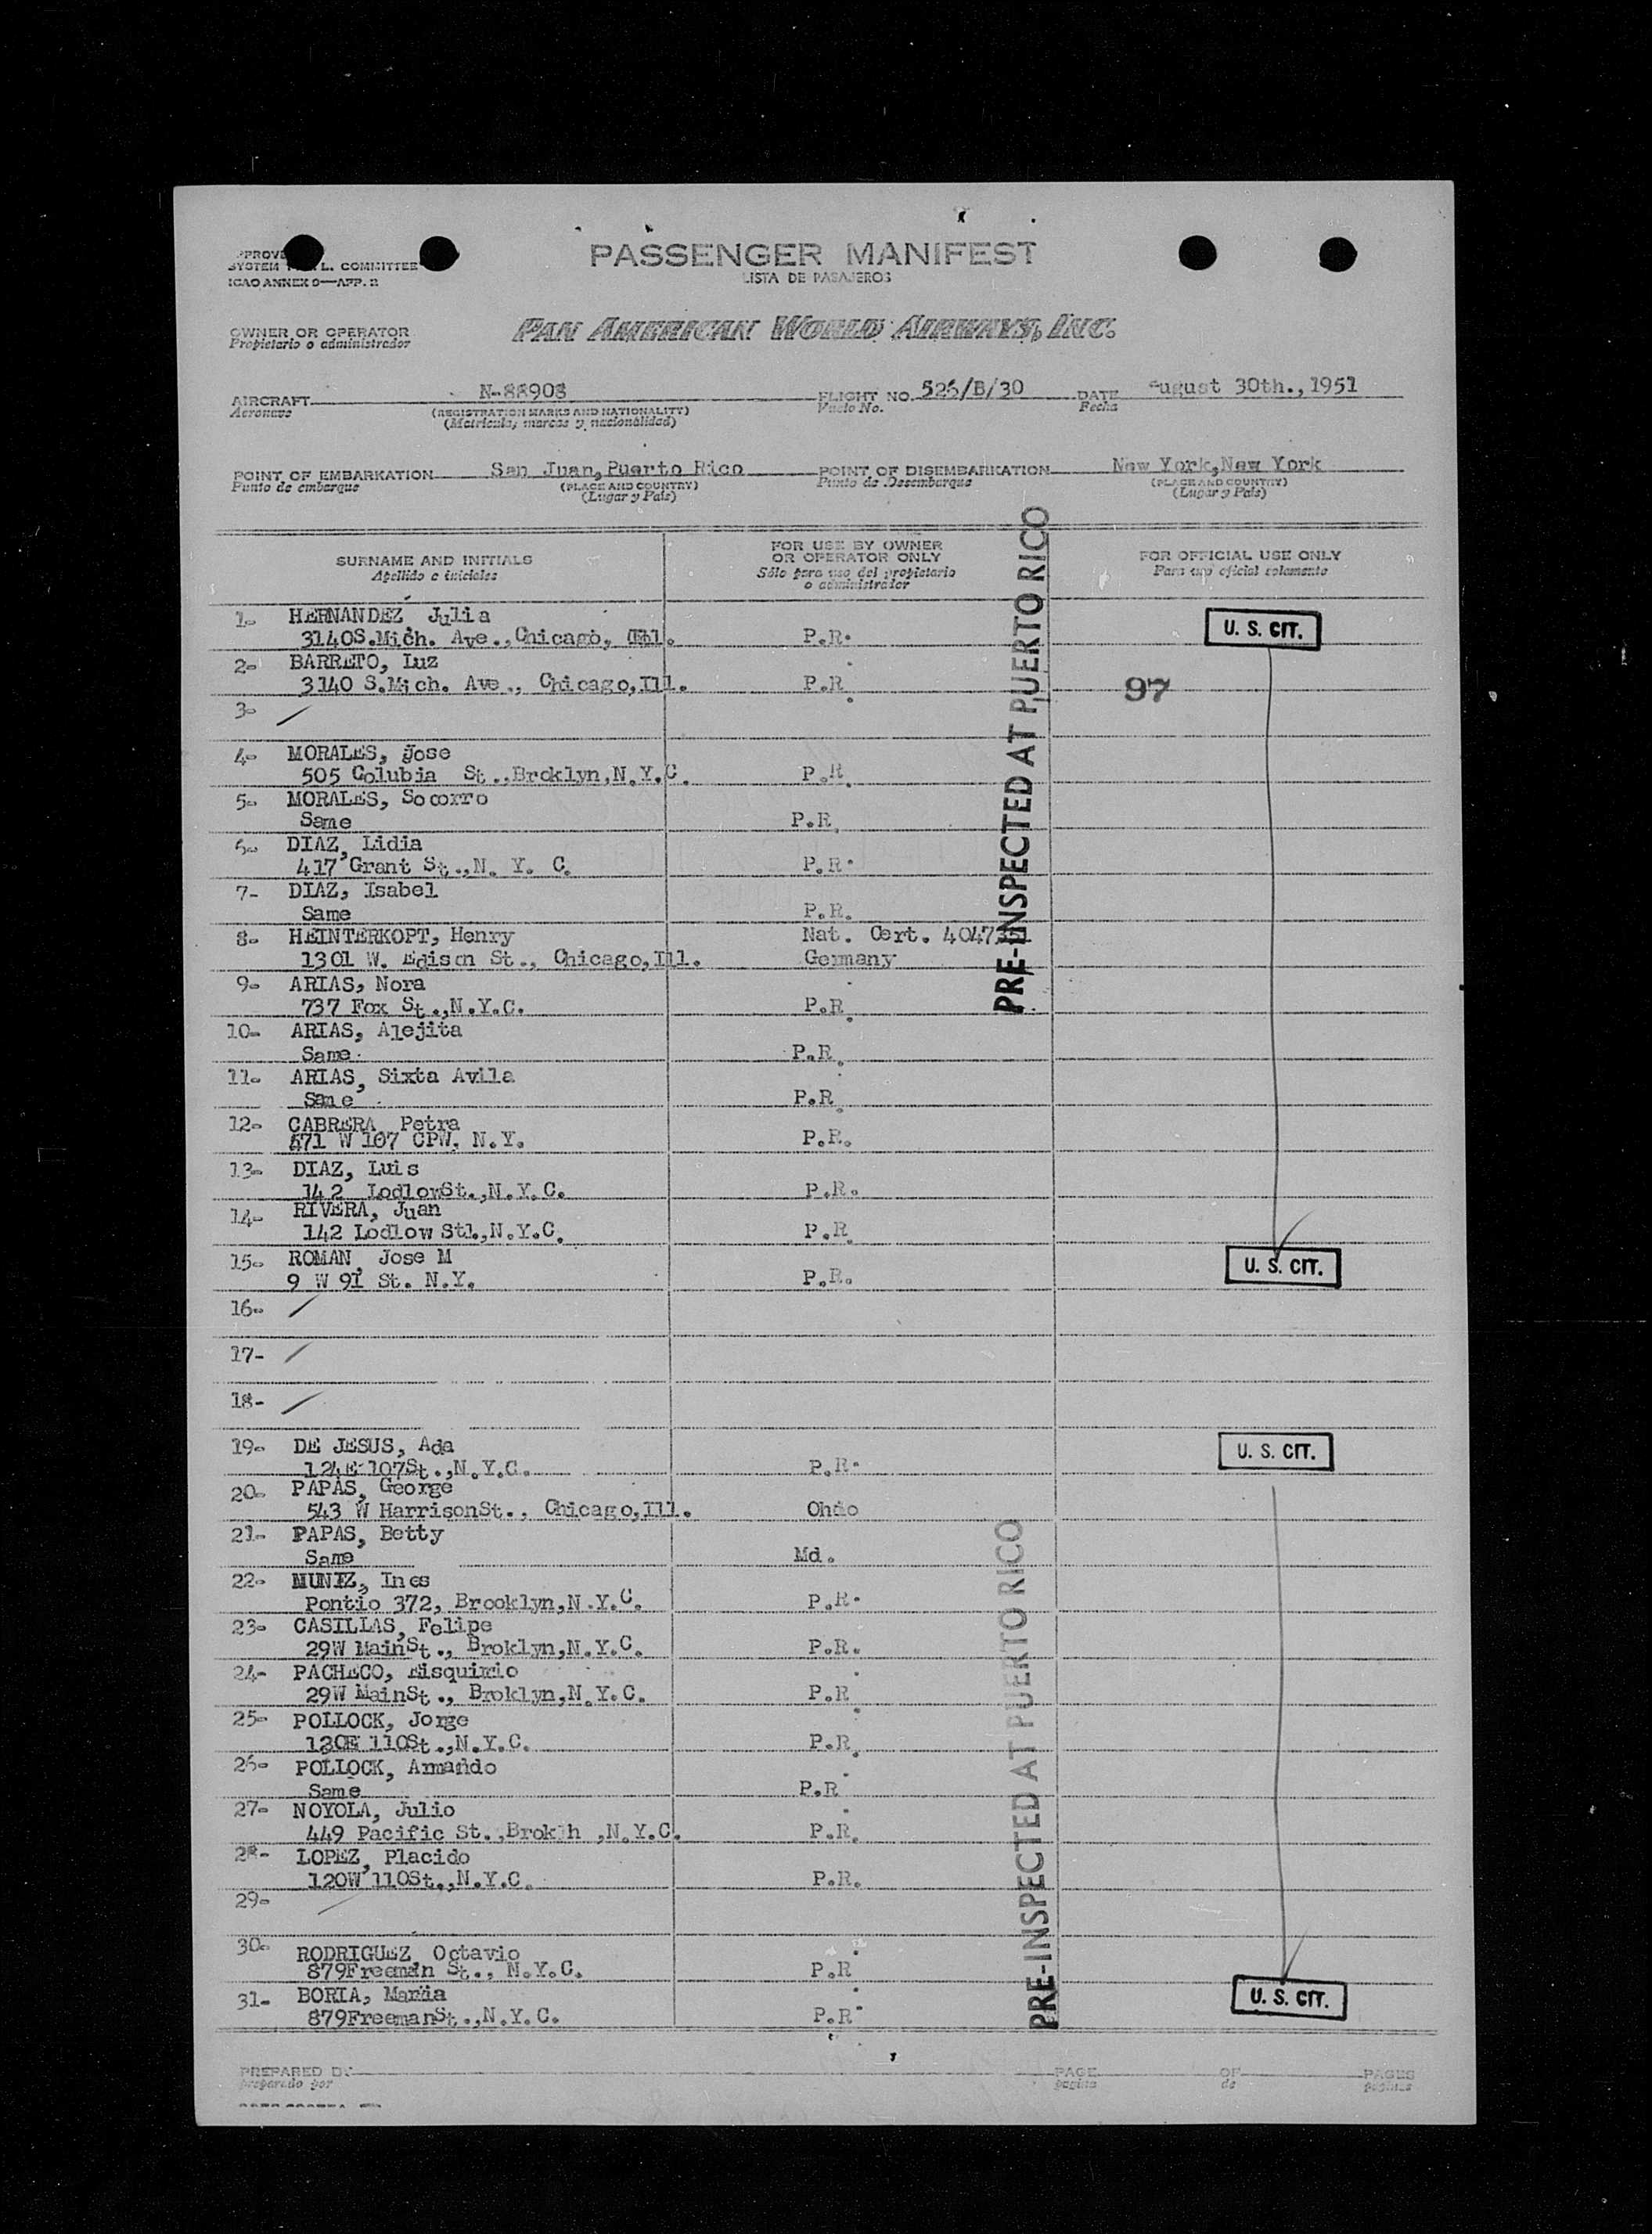 PASSENGER MANIFEST
LISTA DE PASAJEROS
SYSTEM L. COMMITTEE
ICAO ANNEX 9—APP. 2
OWNER OR OPERATOR
Propietario o administrador
PAN AMERICAN WORLD AIRWAYS, INC.
AIRCRAFT N-88908 FLIGHT NO. 526/B/30 DATE August 30th.,1951
Aeronave (REGISTRATION MARKS AND NATIONALITY) Vuelo No. Fecha
(Matricula, marcas y nacionalidad)
POINT OF EMBARKATION San Juan,Puerto Rico POINT OF DISEMBARKATION New York,New York
Punto de embarque (PLACE AND COUNTRY) Punto de Desembarque (PLACE AND COUNTRY)
(Lugar y País) (Lugar y País)
SURNAME AND INITIALS FOR USE BY OWNER OR OPERATOR ONLY FOR OFFICIAL USE ONLY
Apellido e iniciales Sólo para uso del propietario o administrador Para uso oficial solamente
PRE-INSPECTED AT PUERTO RICO
1- HERNANDEZ, Julia U. S. CIT.
3140S.Mich. Ave.,Chicago, Ill. P.R.
2- BARRETO, Luz
3140 S.Mich. Ave., Chicago,Ill. P.R. 97
3- /
4- MORALES, Jose
505 Colubia St.,Brcklyn,N.Y.C. P.R.
5- MORALES, Socorro
Same P.R.
6- DIAZ, Lidia
417 Grant St.,N. Y. C. P.R.
7- DIAZ, Isabel
Same P.R.
8- HEINTERKOPT, Henry Nat. Cert.
1301 W. Edison St., Chicago,Ill. Germany
9- ARIAS, Nora
737 Fox St.,N.Y.C. P.R.
10- ARIAS, Alejita
Same P.R.
11- ARIAS, Sixta Avila
Same P.R.
12- CABRERA, Petra
571 W 107 CPW. N.Y. P.R.
13- DIAZ, Luis
142 LodlowSt.,N.Y.C. P.R.
14- RIVERA, Juan
142 Lodlow Stl.,N.Y.C. P.R.
15- ROMAN, Jose M U. S. CIT.
9 W 91 St. N.Y. P.R.
16- /
17- /
18- /
19- DE JESUS, Ada U. S. CIT.
124E 107St.,N.Y.C. P.R.
20- PAPAS, George
543 W HarrisonSt., Chicago,Ill. Ohio
PRE-INSPECTED AT PUERTO RICO
21- PAPAS, Betty
Same Md.
22- MUNIZ, Ines
Pontio 372, Brooklyn,N.Y.C. P.R.
23- CASILLAS, Felipe
29W MainSt., Broklyn,N.Y.C. P.R.
24- PACHECO, Eisquimio
29W MainSt., Broklyn,N.Y.C. P.R.
25- POLLOCK, Jorge
120E 110St.,N.Y.C. P.R.
26- POLLOCK, Armando
Same P.R.
27- NOYOLA, Julio
449 Pacific St.,Brok h ,N.Y.C. P.R.
28- LOPEZ, Placido
120W 110St.,N.Y.C. P.R.
29- /
30- RODRIGUEZ, Octavio
879Freeman St., N.Y.C. P.R.
31- BORIA, Maria U. S. CIT.
879FreemanSt.,N.Y.C. P.R.
PREPARED BY PAGE OF PAGES
preparado por pagina de paginas